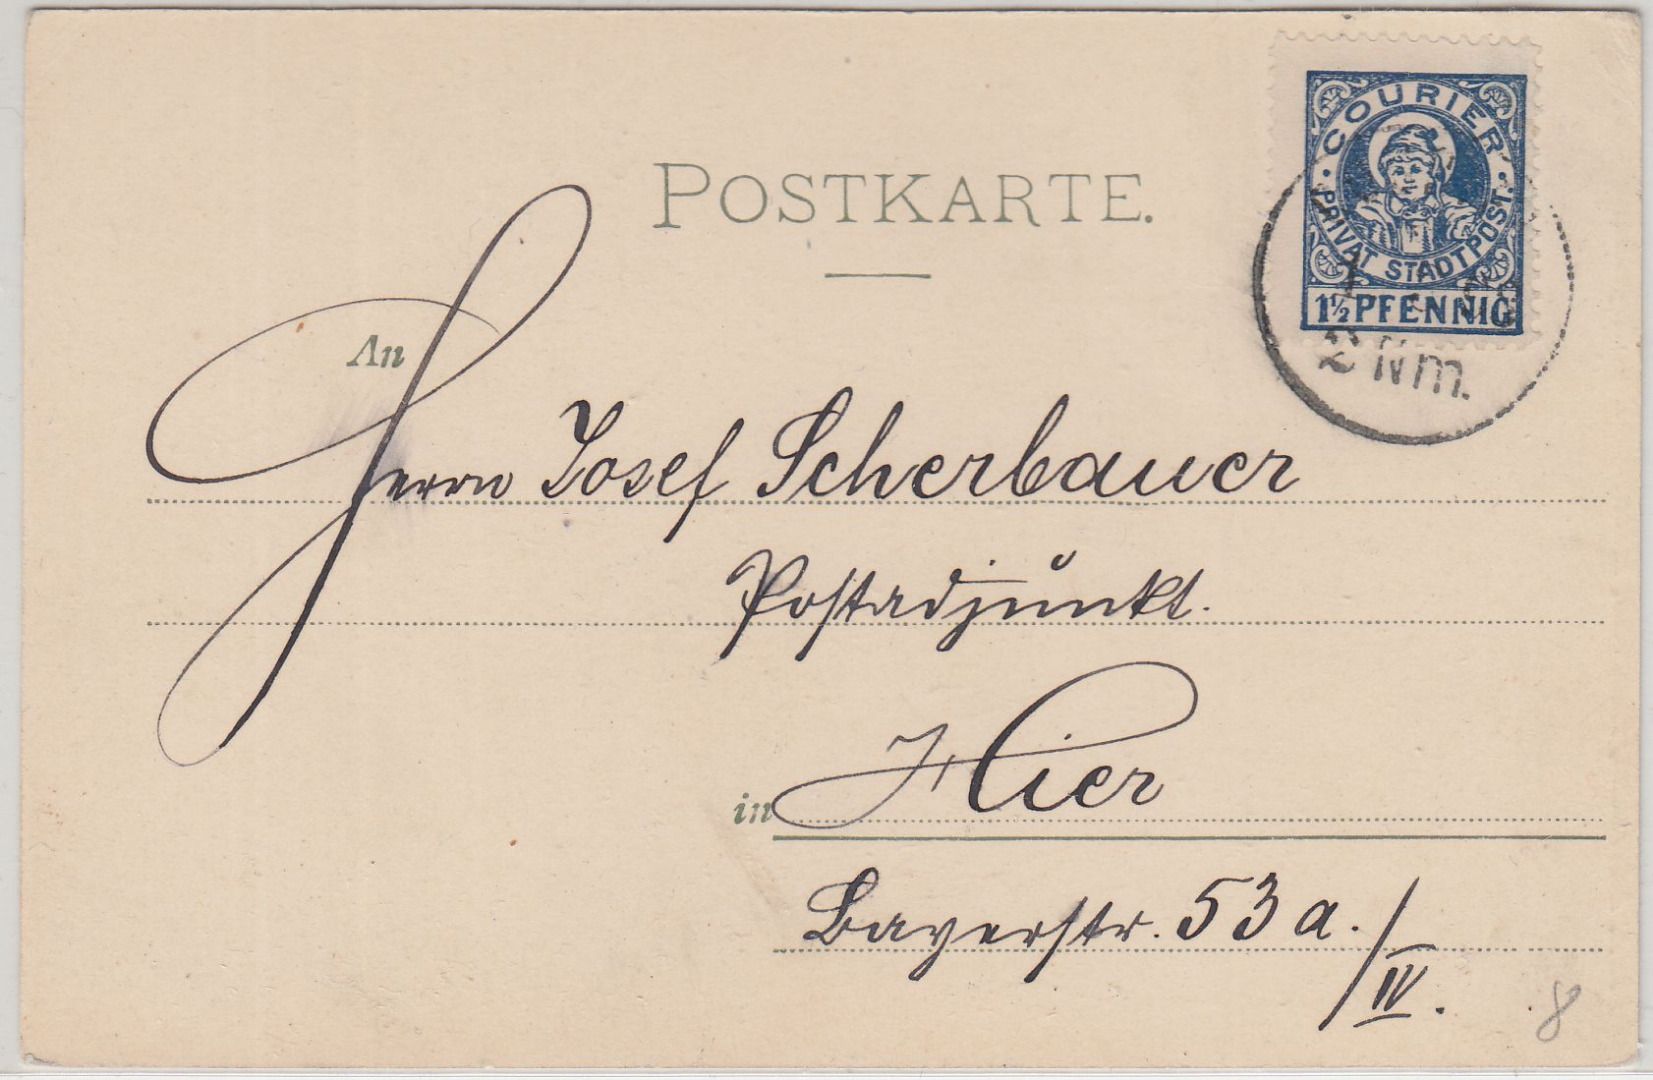 POSTKARTE.
COURIER
PRIVAT STADTPOST.
1½ PFENNIG
2 Nm.
An
Herrn Josef Scherbauer
Postadjunkt.
in Hier
Bayerstr. 53 a./IV.
8